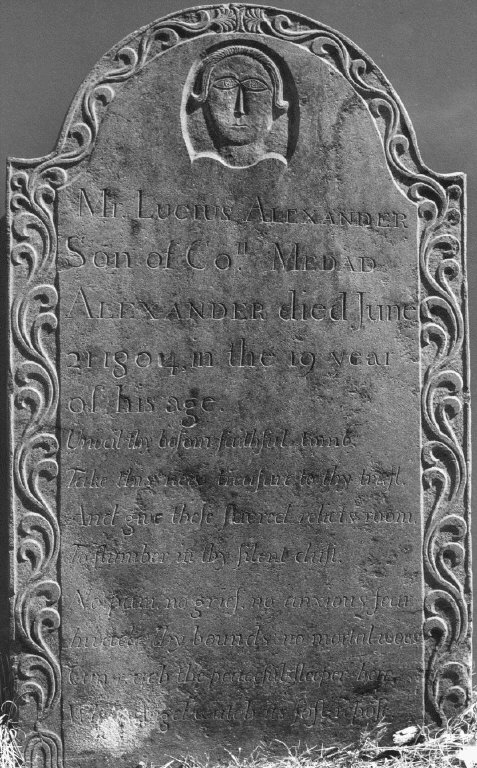 Mr. Lucius Alexander
Son of Coll. Medad
Alexander died June
21 1804, in the 19 year
of his age.
Unveil thy bosom faithful tomb
Take this new treasure to thy trust.
And give these sacred relicks room,
To slumber in thy silent dust.
No pain, no grief, no anxious fear
thy bounds no mortal woes
reach the peaceful sleeper here